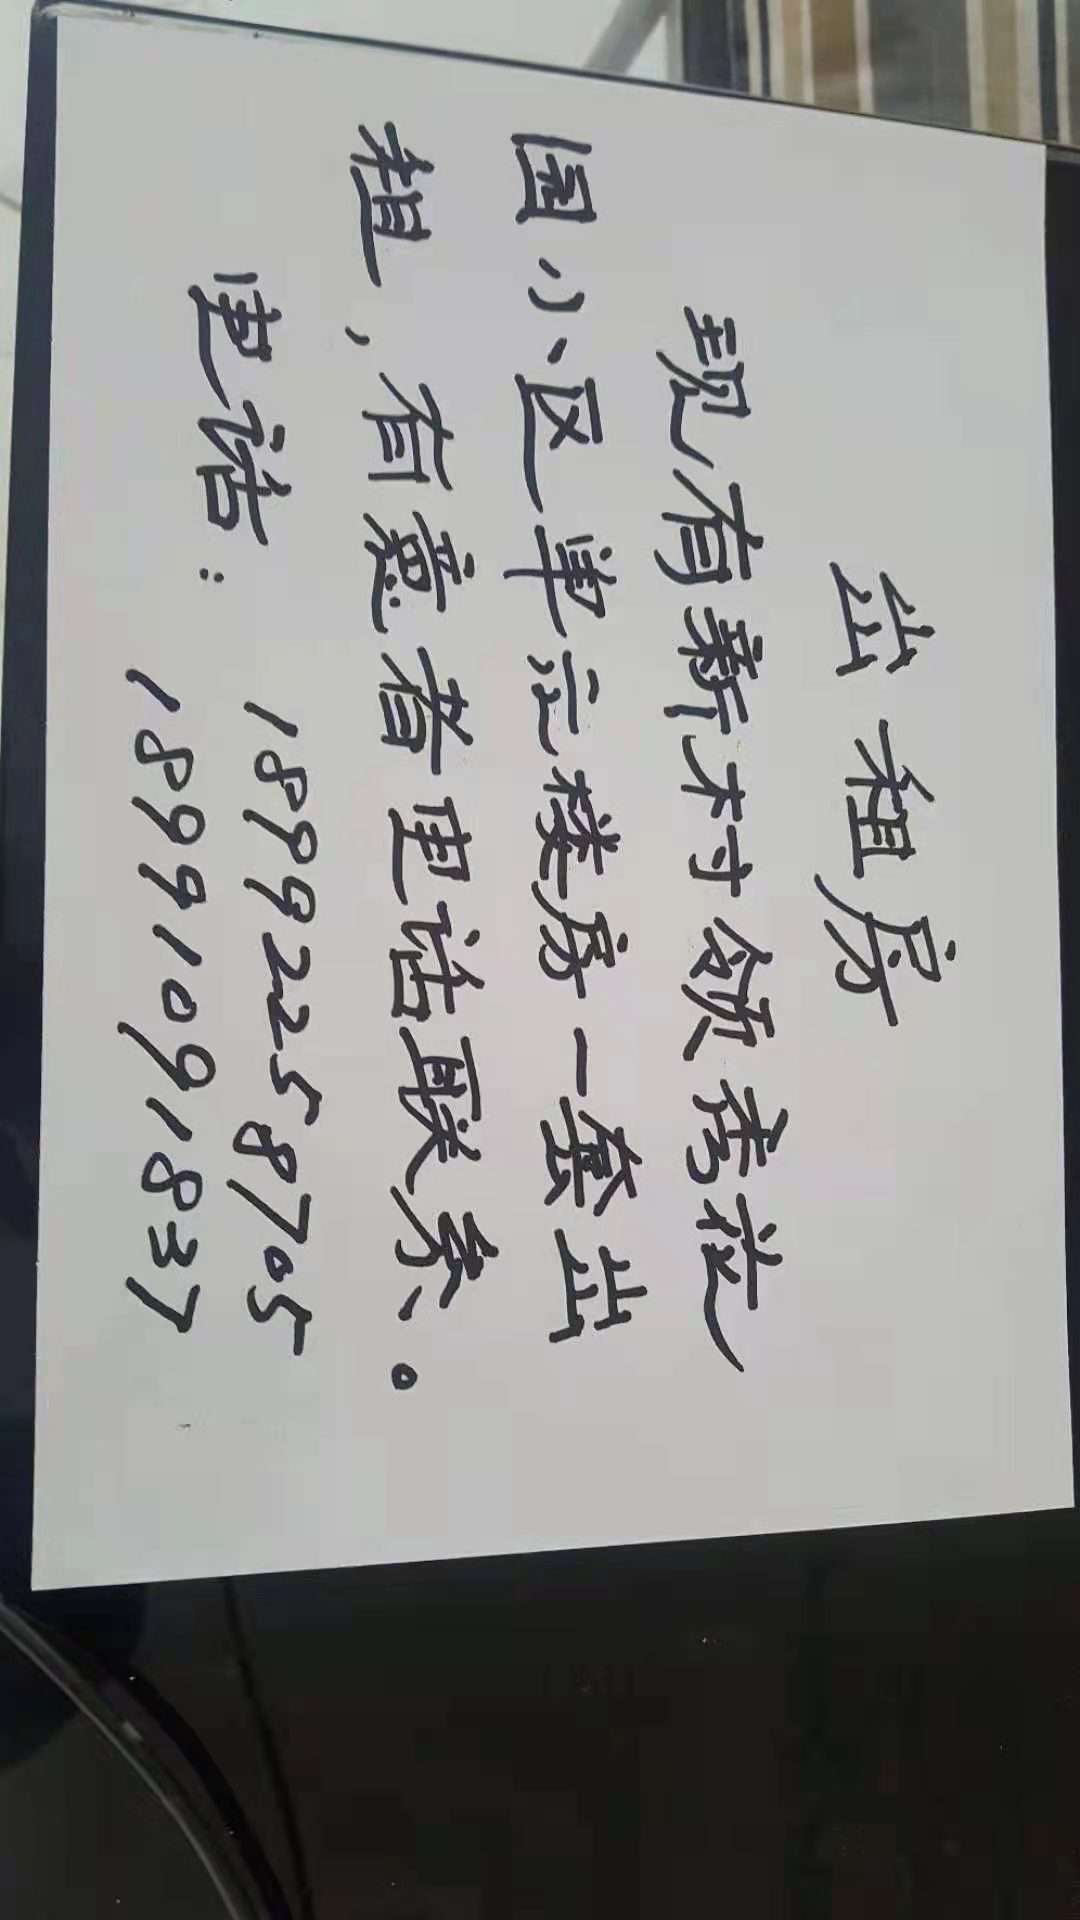 出租房
现有新村领秀花
园小区单位楼房一套出
租，有意者电话联系。
电话：18992258705
18991091837